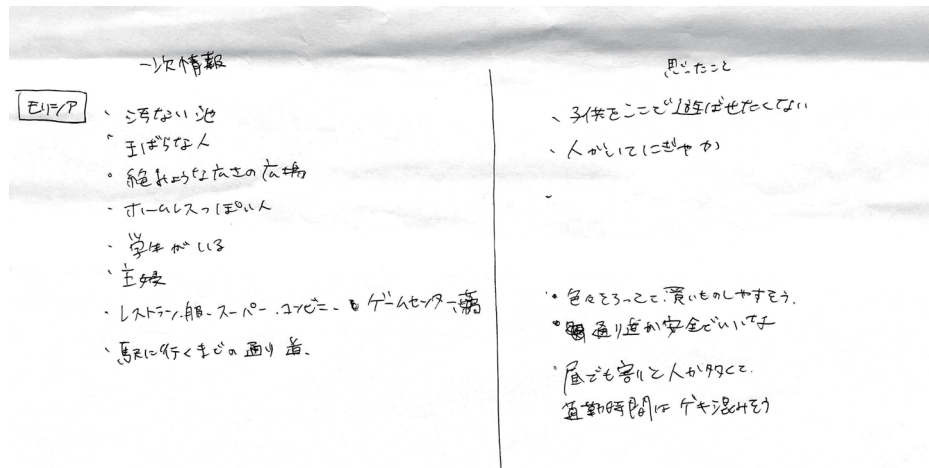 一次情報
モリシア
・汚ない池
・まばらな人
・絶みょうな広さの広場
・ホームレスっぽい人
・学生がいる
・主婦
・レストラン、服、スーパー、コンビニ、ゲームセンター
・駅に行くまでの通り道、
思ったこと
・子供をここで遊ばせたくない
・人がいてにぎやか
・
・色々そろってて、買いものしやすそう、
・通り道が安全でいいな
・昼でも割と人が多くて、
通勤時間はゲキ混みそう